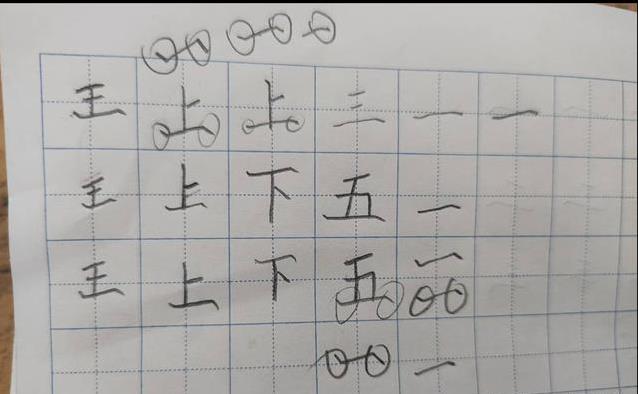 王上上三一一
王上下五一
王上下五一
一